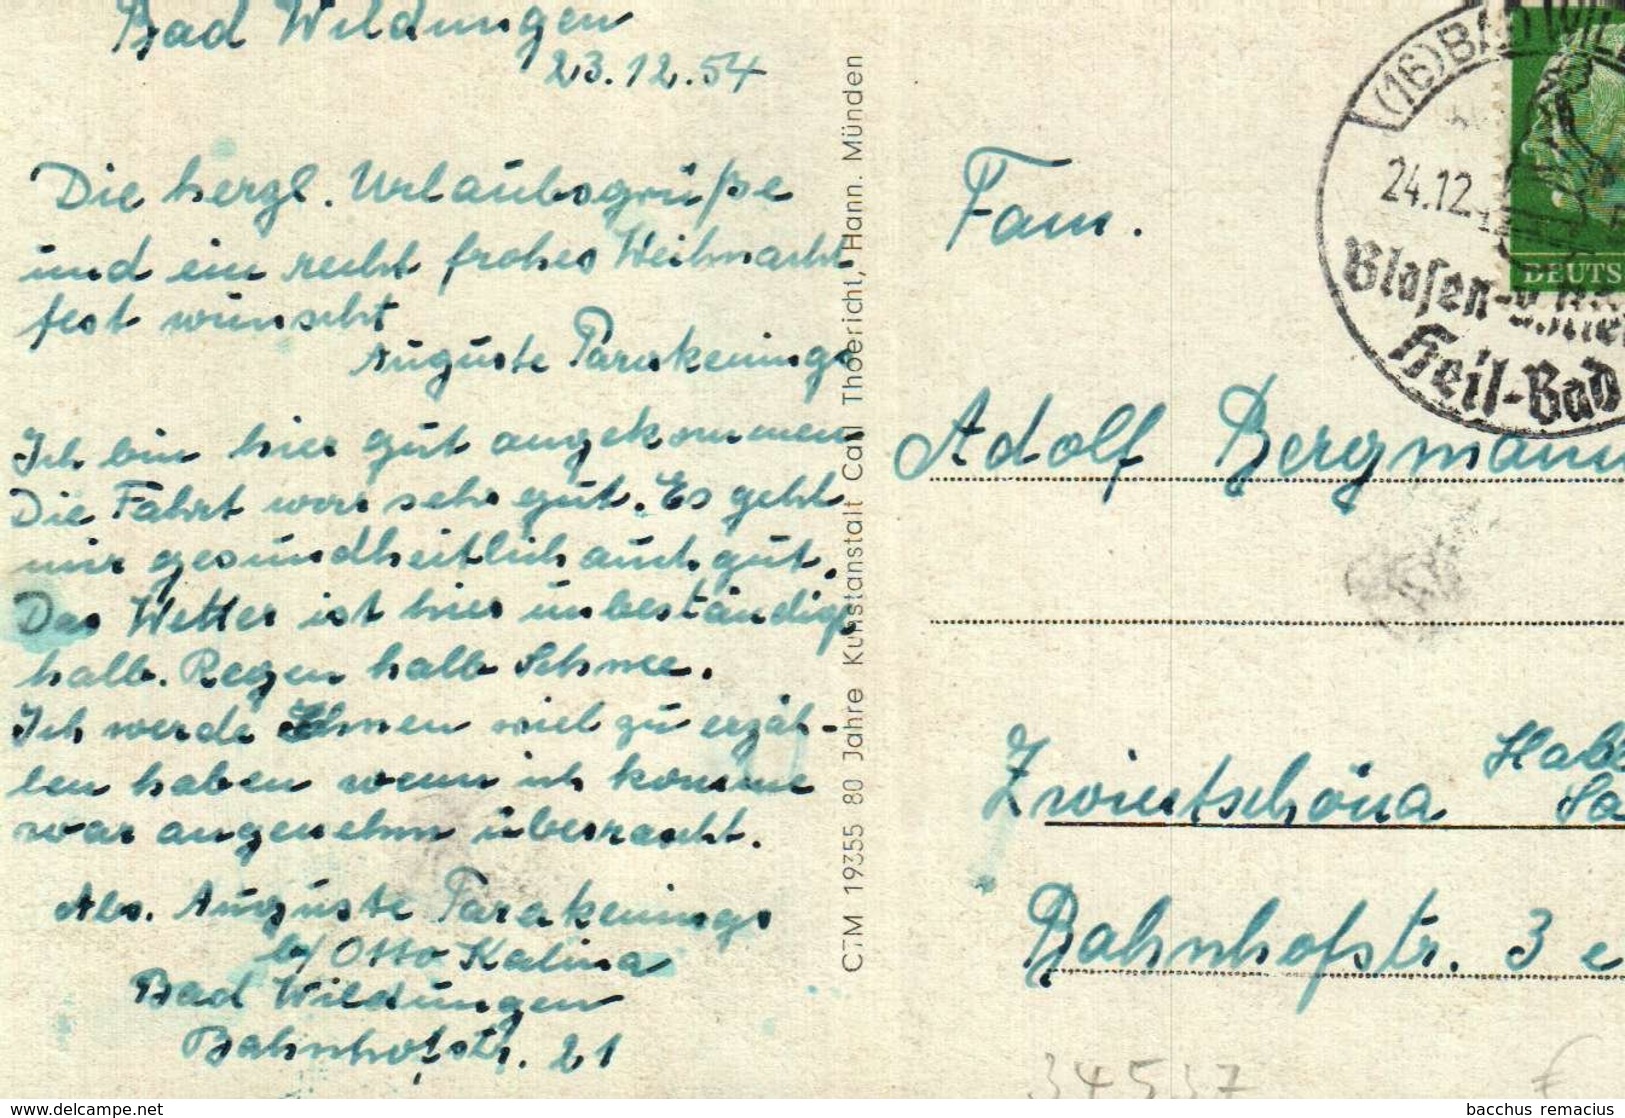 Bad Wildungen
23.12.54
Die herzl. Urlaubsgrüße
und ein recht frohes Weihnacht
fest wünscht
Auguste
Ich bin hier gut angekommen
Die Fahrt war sehr gut. Es geht
mir gesundheitlich auch gut.
Das Wetter ist hier unbeständig
halb. Regen halb Schnee.
Ich werde Ihnen viel zu erzäh-
len haben wenn ich komme
war angenehm überrascht.
Abs. Auguste
b/ Otto Kalina
Bad Wildungen
Bahnhofstr. 21
CTM 19355 80 Jahre Kunstanstalt Carl Thoericht, Hann. Münden
(16) BAD WIL
24.12.
Blasen-u.Nie
Heil-Bad
DEUTS
Fam.
Adolf Bergmann
Halle
Zwintschöna Sa
Bahnhofstr. 3 e
34537
€
www.delcampe.net
bacchus remacius